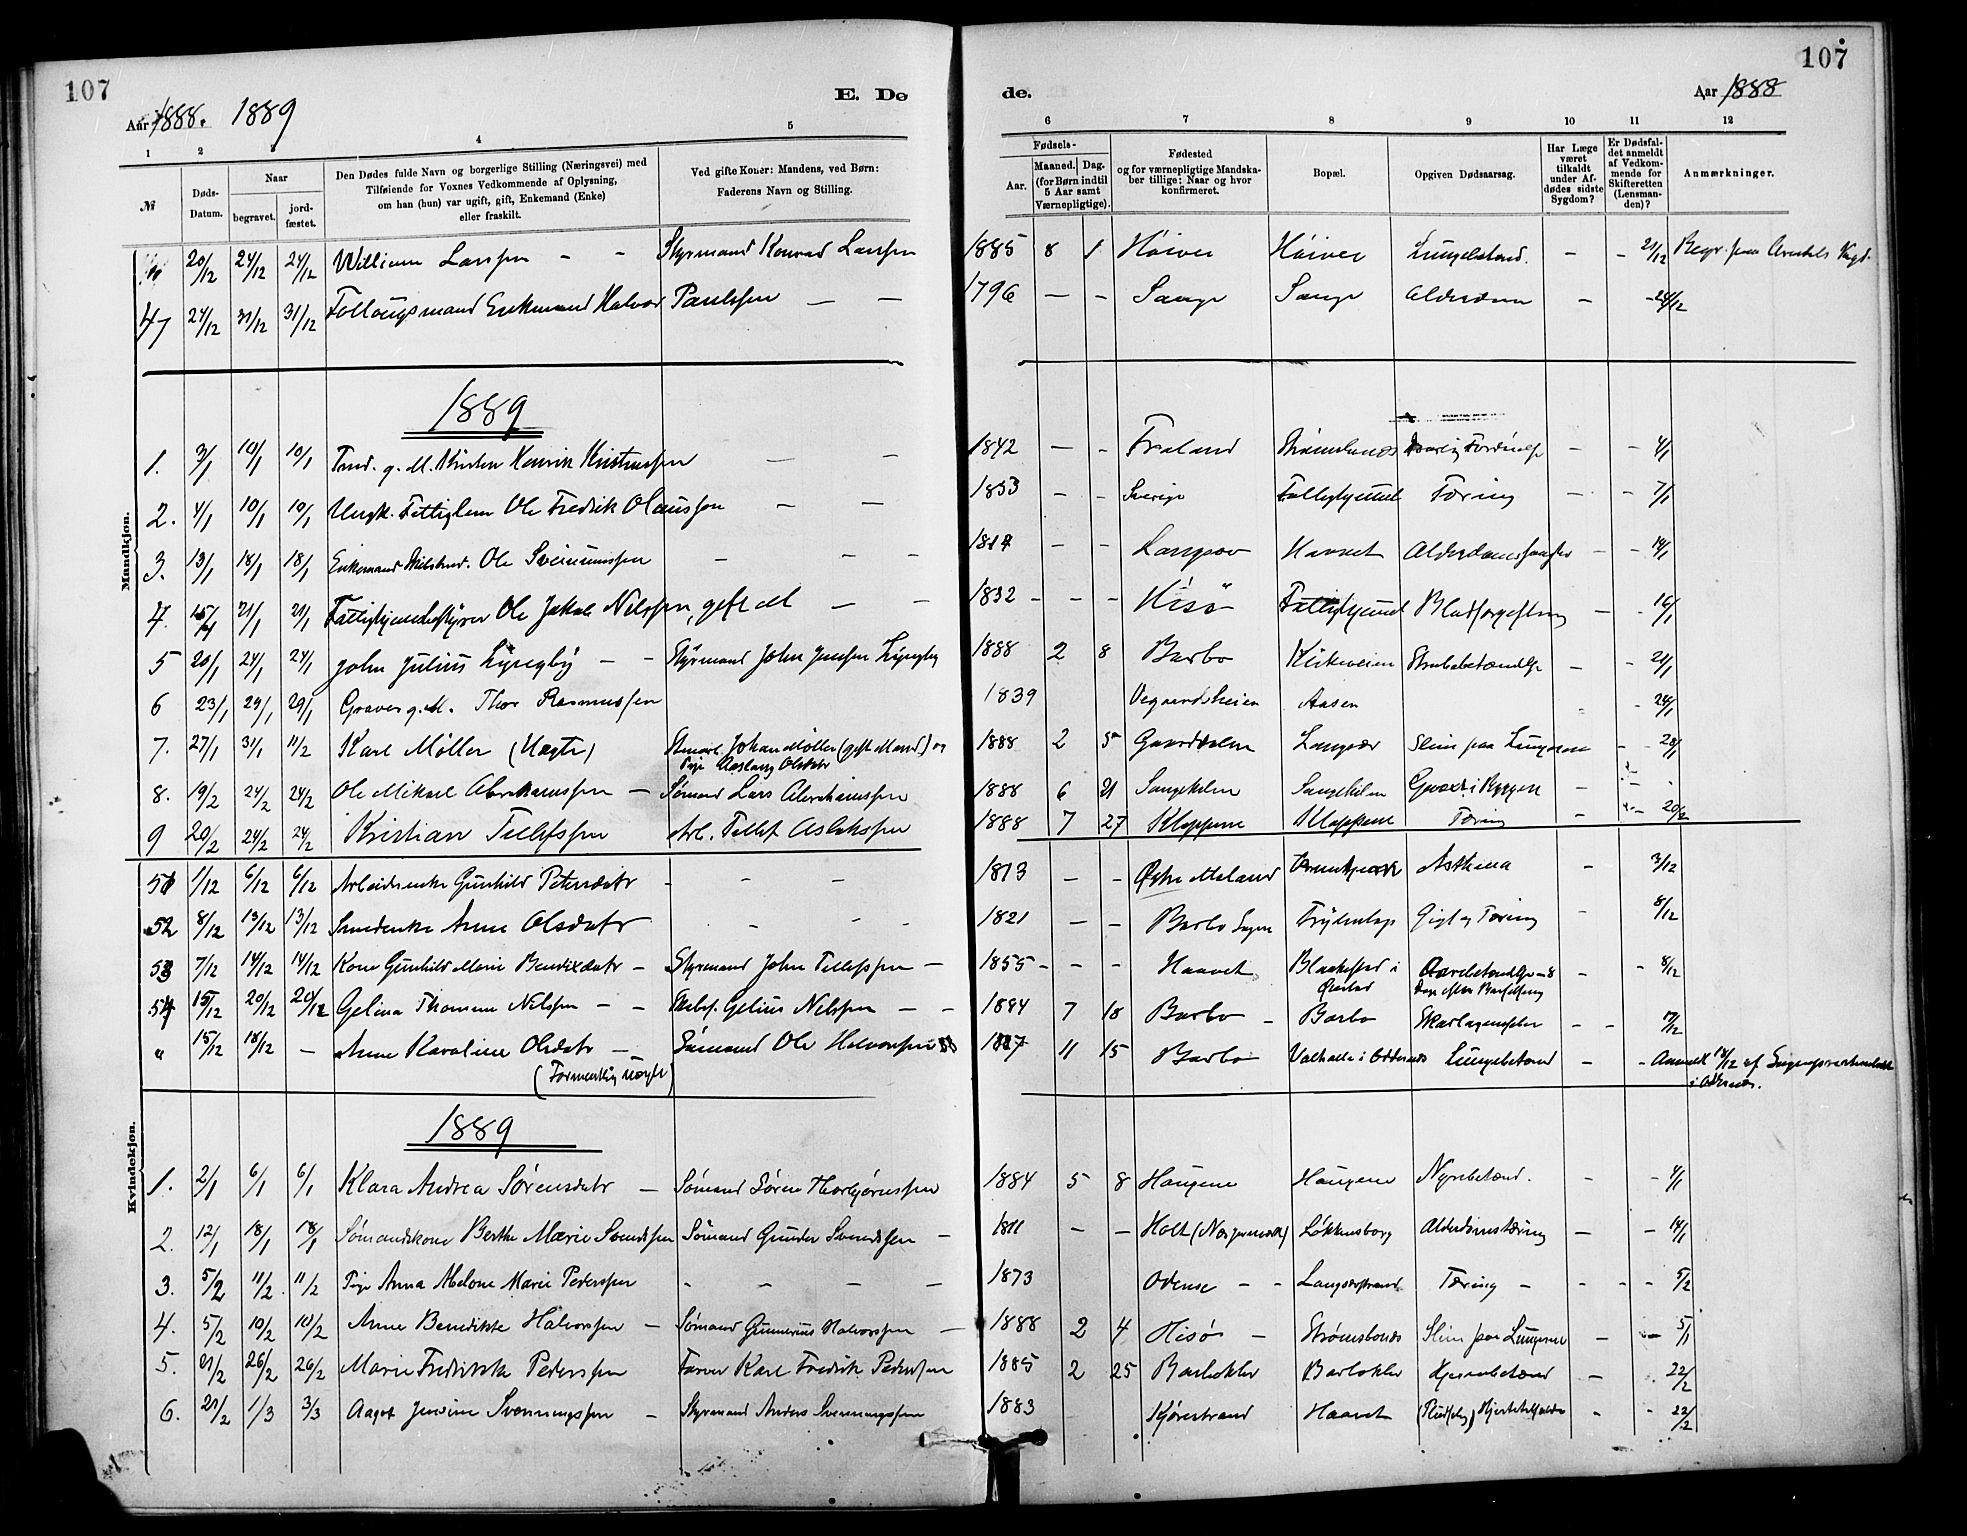 107
107
E. Dø
de.
Aar 1888. 1889
Aar 1888
1 2 3 4 5
6 7 8 9 10 11 12
№
Døds-Datum.
Naar
begravet.
jordfæstet.
Den Dødes fulde Navn og borgerlige Stilling (Næringsvei) med
Tilføiende for Voxnes Vedkommende af Oplysning,
om han (hun) var ugift, gift, Enkemand (Enke)
eller fraskilt.
Ved gifte Koner: Mandens, ved Børn:
Faderens Navn og Stilling.
Fødsels-
Aar.
Maaned. Dag.
(for Børn indtil
5 Aar samt
Værnepligtige).
Fødested
og for værnepligtige Mandskaber tillige: Naar og hvor
konfirmeret.
Bopæl.
Opgiven Dødsaarsag.
Har Læge
været
tilkaldt
under Afdødes sidste
Sygdom?
Er Dødsfaldet anmeldt
af Vedkommende for
Skifteretten
(Lensmanden)?
Anmærkninger.
Mandkjøn.
20/12 24/12 24/12 William Larssen - - Styrmand Konrad Larssen 1885 8 1 Høiver Høiver Lungebetænd. - - 21/12 Begr. paa Arendals Kgd.
47 24/12 31/12 31/12 Enkemand Halvor Paulssen - - 1796 - - Sange Sange Alderdom - - 24/12
1889
1. 3/1 10/1 10/1 Tmd. g. M. Kristen Henrik Kristenssen - - 1842 - - Froland Strømsbunes - - 4/1
2. 4/1 10/1 10/1 Ungk. Fattiglem Ole Fredrik Olaussen - - 1853 - - Sverige Fattighjemmet Tæring - - 7/1
3. 13/1 18/1 18/1 Enkemand Ole Sveinunssen - - - - - Langsæv Haavet - - 14/1
4. 15/1 21/1 21/1 Fattighjemsbestyrer Ole Jakob Nilssen, gift M - - 1832 - - - Hisö Fattighjemmet Blodforgiftning - - 16/1
5 20/1 24/1 24/1 John Julius Lyngby - - Styrmand John Lyngby 1888 2 8 Barbo Kirkeveien Strubebetændelse - - 21/1
6 23/1 29/1 29/1 Graver g. M. Thor Rasmussen 1839 Vegaardsheien Aasen - 24/1
7. 27/1 31/1 11/2 Karl Møller (Uægte) Johan Møller (gift Mand) og
Pige Aaslaug Olsdatr 1888 2 5 Gaardsalen Langsæv Slim paa Lungerne - 28/1
8. 19/2 24/2 24/2 Ole Mikael Abrahamssen - Sømand Lars Abrahamssen 1888 6 21 Sangekilen Sangekilen -
9 20/2 24/2 24/2 Kristian Tellefssen Arb. Tellef Aslakssen 1888 7 27 Kloppene Kloppene Tæring - 20/2
51 1/12 6/12 6/12 Arbeidsenke Gunhild Petersdatr - - - 1813 - - Østre Moland Asthma - 3/12
52 8/12 13/12 13/12 Smedenke Anne Olsdatr - - 1821 - - Barbo Sogn Gigt og Tæring - 8/12
53 7/12 14/12 14/12 Kone Gunhild Marie Bendixdatr - Styrmand John Tellefssen - 1855 - - - Haavet Blaakestad i
Øiestad - 8
Dage efter Barselseng - - 8/12
54 15/12 20/12 20/12 Gelina Thomine Nilssen - - Gelius Nilssen - - 1884 7 18 Barbo - Barbo Skarlagensfeber - - 17/12
" 15/12 18/12 - Anne Karoline Olsdatr - Sømand Ole Halvorssen 1887 11 15 Barbo Valhalla i Oddernes Lungebetænd - - Anmeldt 18/12 af Sognepræstembedet
i Oddernes.
(Formentlig uægte)
Kvindekjøn.
1889
1. 2/1 6/1 6/1 Klara Andrea Sørensdatr - Sømand Søren Thorbjørnssen 1884 5 8 Haugene Haugene Nyrebetænd. - - 4/1
2. 12/1 18/1 18/1 Sømandskone Berthe Marie Svendssen Sømand Gunder Svendssen - 1811 - - Holt Løkkensborg Alderdomstæring - - 14/1
3. 5/2 11/2 11/2 Pige Anna Abelone Marie Pederssen - - - - 1873 Odense - - Langsæstrand Tæring - - - - 5/2
4. 5/2 10/2 10/2 Anne Benedikte Halvorssen - Sømand Gunnerius Halvorssen - 1888 2 4 Hisø - Strømsbunes Slim paa Lungerne - - 5/1
5. 21/2 26/2 26/2 Marie Fredrikke Pederssen Farver Karl Fredrik Pederssen 1885 2 25 Barbokler Barbokler Hjernebetænd - - 22/2
6. 21/2 1/3 3/3 Aagot Jensine Svenningssen - Styrmand Anders Svenningssen 1883 Kjørestrand Haavet - - 22/2